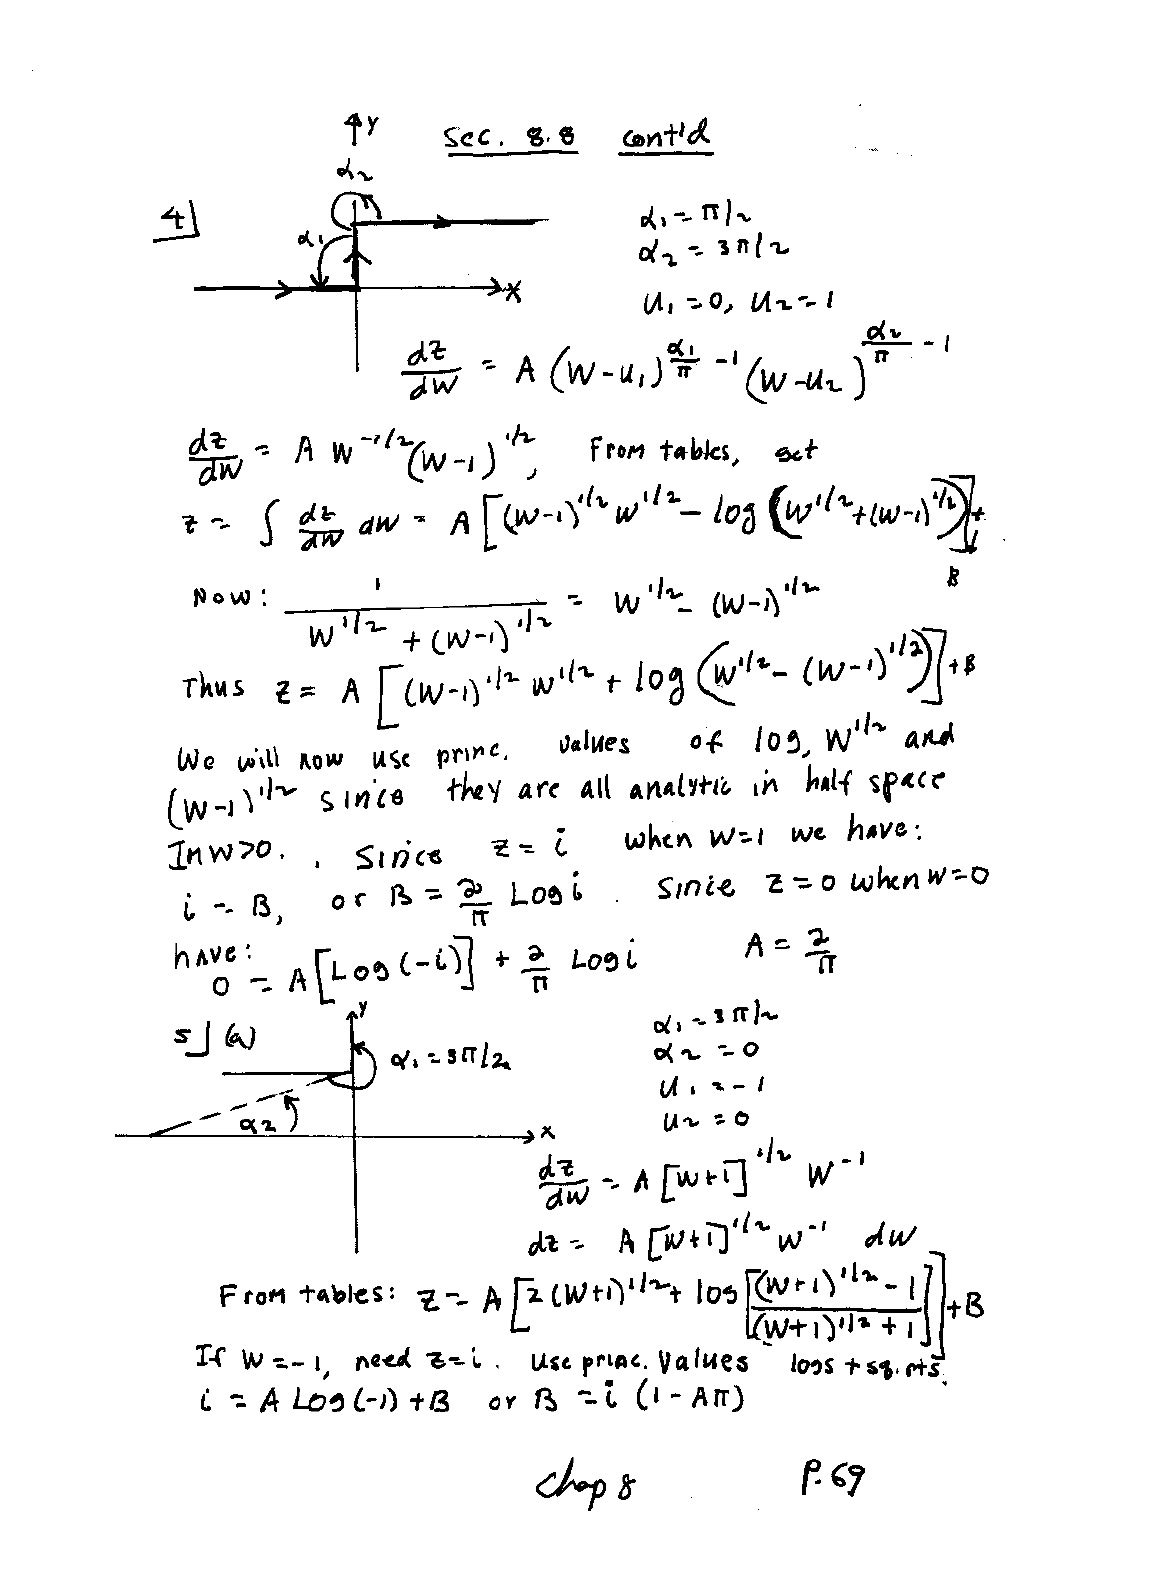 Sec. 8.8 cont'd
4]
y
α₂
α₁
x
α₁ = π/2
α₂ = 3π/2
u₁ = 0, u₂ = 1
dz/dw = A (w-u₁)^(α₁/π - 1) (w-u₂)^(α₂/π - 1)
dz/dw = A w^(-1/2) (w-1)^(1/2), From tables, get
z = ∫ dz/dw dw = A [(w-1)^(1/2) w^(1/2) - log (w^(1/2) + (w-1)^(1/2))] + B
Now: 1/(w^(1/2) + (w-1)^(1/2)) = w^(1/2) - (w-1)^(1/2)
Thus z = A [(w-1)^(1/2) w^(1/2) + log (w^(1/2) - (w-1)^(1/2))] + B
We will now use princ. values of log, w^(1/2) and
(w-1)^(1/2) since they are all analytic in half space
Im w>0. Since z = i when w=1 we have:
i = B, or B = 2/π Log i. Since z=0 when w=0
have:
0 = A [Log(-i)] + 2/π Log i A = 2/π
5] (a)
y
α₁ = 3π/2
α₂
x
α₁ = 3π/2
α₂ = 0
u₁ = -1
u₂ = 0
dz/dw = A [w+1]^(1/2) w^(-1)
dz = A [w+1]^(1/2) w^(-1) dw
From tables: z = A [2(w+1)^(1/2) + log [((w+1)^(1/2) - 1)/((w+1)^(1/2) + 1)]] + B
If w = -1, need z = i. Use princ. values logs + sq. rts.
i = A Log(-1) + B or B = i (1 - Aπ)
Chap 8 P. 69